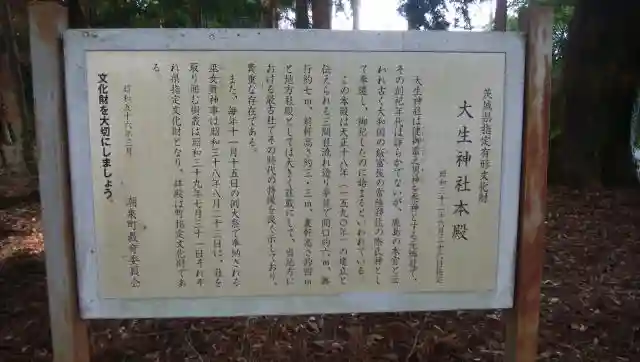 茨城県指定有形文化財
大生神社本殿
昭和三十八年八月二十三日指定
大生神社は健御雷之男神を祭神とする元郷社で、
その創祀年代は詳らかでないが、鹿島の本宮と云
われ古く大和国の飯富族の常陸移住の際氏神とし
て奉遷し、御祀したのに始まるといわれている
この本殿は天正十八年(一五九〇年)の建立と
伝えられる三間社流れ造り茅葺で間口約六m、奥
行約七m、前軒高さ約三・三m、裏軒高さ約四m
と地方社殿としては大きく荘厳にして、当地方に
おける最古社でその時代の特徴を良く示しており、
貴重な存在である。
また、毎年十一月十五日の例大祭で奉納される
巫女舞神事は昭和三十八年八月二十三日に、社を
取り囲む樹叢は昭和三十九年七月三十一日それぞ
れ県指定文化財となり、拝殿は町指定文化財であ
る。
昭和五十六年三月
潮来町教育委員会
文化財を大切にしましょう